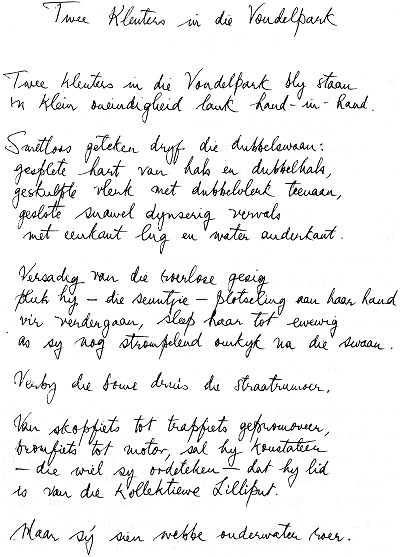 Twee Kleuters in die Vondelpark
Twee kleuters in die Vondelpark bly staan
'n klein oneindigheid lank hand-in-hand.
Smetloos geteken dryf die dubbelswaan:
gesplete hart van hals en dubbelhals,
geskulpte vlerk met dubbelvlerk teenaan,
geslote snawel dynserig vervals
met eenkant lug en water anderkant.
Versadig van die roerlose gesig
pluk hy – die seuntjie – plotseling aan haar hand
vir verdergaan, sleep haar tot ewewig
as sy nog strompelend omkyk na die swaan.
Verby die bome druis die straatrumoer.
Van skopfiets tot trapfiets gepromoveer,
bromfiets tot motor, sal hy konstateer
– die wiel sy ordeteken – dat hy lid
is van die Kollektiewe Lilliput.
Maar sý sien webbe onderwater roer.